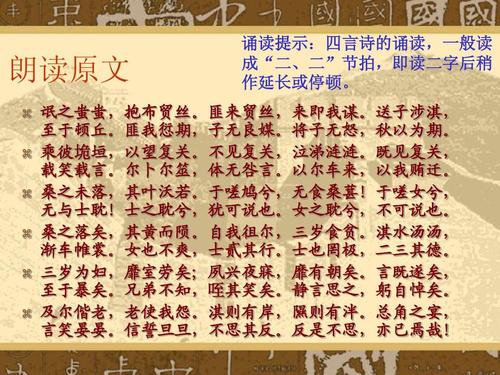 诵读提示：四言诗的诵读，一般读
成“二、二”节拍，即读二字后稍
作延长或停顿。
朗读原文
氓之蚩蚩，抱布贸丝。匪来贸丝，来即我谋。送子涉淇，
至于顿丘。匪我愆期，子无良媒。将子无怒，秋以为期。
乘彼垝垣，以望复关。不见复关，泣涕涟涟。既见复关，
载笑载言。尔卜尔筮，体无咎言。以尔车来，以我贿迁。
桑之未落，其叶沃若。于嗟鸠兮，无食桑葚！于嗟女兮，
无与士耽！士之耽兮，犹可说也。女之耽兮，不可说也。
桑之落矣，其黄而陨。自我徂尔，三岁食贫。淇水汤汤，
渐车帷裳。女也不爽，士贰其行。士也罔极，二三其德。
三岁为妇，靡室劳矣；夙兴夜寐，靡有朝矣。言既遂矣，
至于暴矣。兄弟不知，咥其笑矣。静言思之，躬自悼矣。
及尔偕老，老使我怨。淇则有岸，隰则有泮。总角之宴，
言笑晏晏。信誓旦旦，不思其反。反是不思，亦已焉哉！